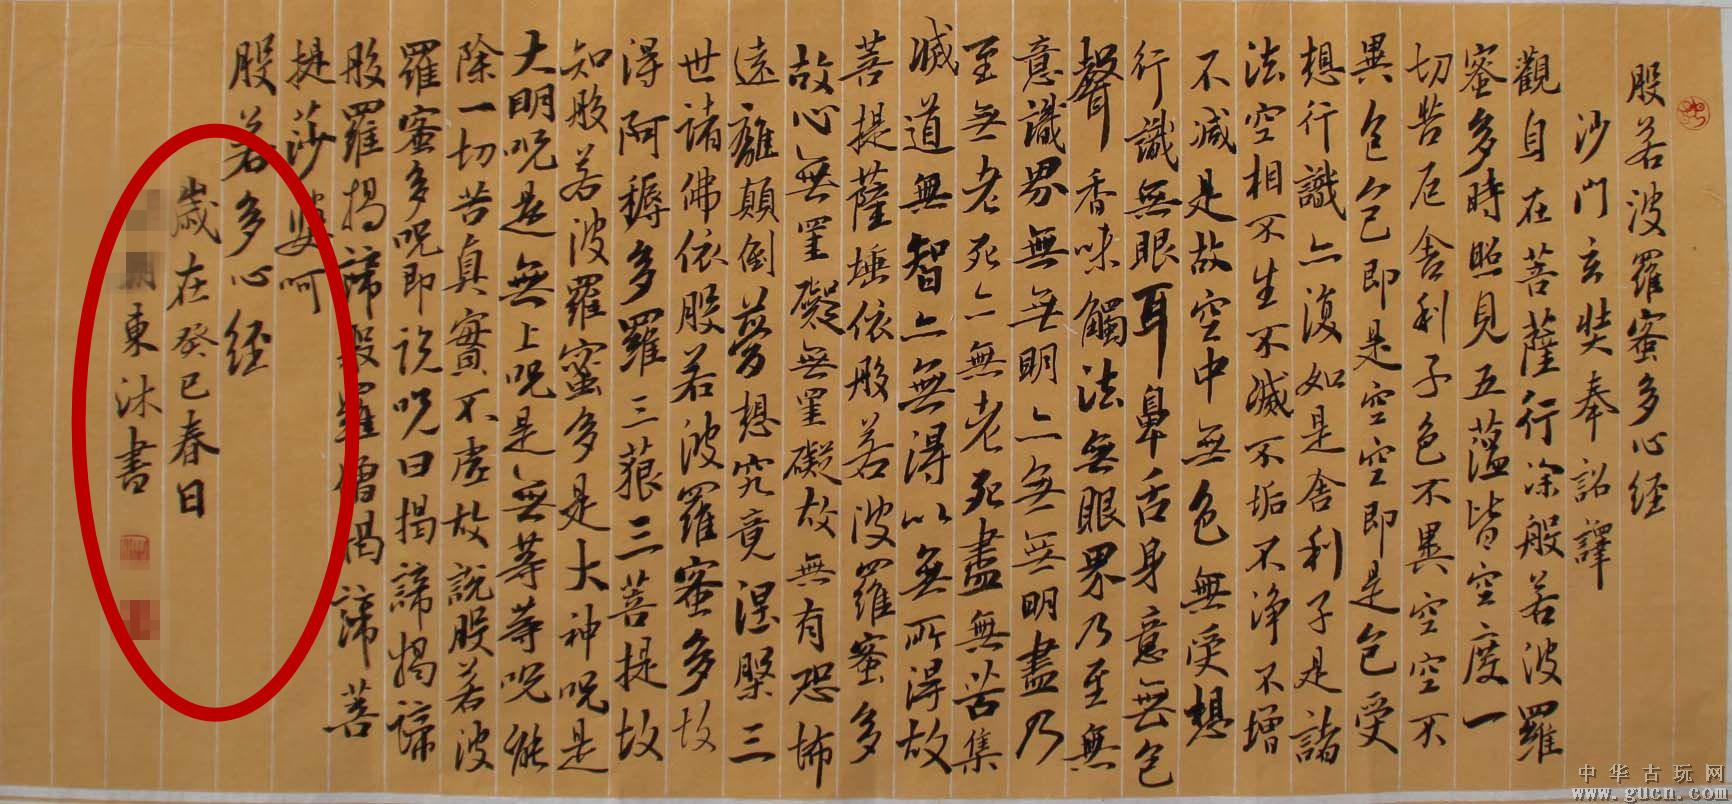 般若波羅蜜多心经
沙門玄奘奉詔譯
觀自在菩薩行深般若波羅
蜜多時照見五蕴皆空度一
切苦厄舍利子色不異空空不
異色色即是空空即是色受
想行識亦復如是舍利子是諸
法空相不生不滅不垢不净不增
不减是故空中無色無受想
行識無眼耳鼻舌身意無色
聲香味觸法無眼界乃至無
意識界無無明亦無無明盡乃
至無老死亦無老死盡無苦集
滅道無智亦無得以無所得故
菩提薩埵依般若波羅蜜多
故心無罣礙無罣礙故無有恐怖
遠離顛倒夢想究竟涅槃三
世諸佛依般若波羅蜜多故
得阿耨多羅三藐三菩提故
知般若波羅蜜多是大神呪是
大明呪是無上呪是無等等呪能
除一切苦真實不虚故説般若波
羅蜜多呪即说呪曰揭諦揭諦
般羅揭諦般羅僧揭諦菩
提莎婆呵
般若多心经
歲在癸巳春日
東沐書
中华古玩网
www.gucn.com